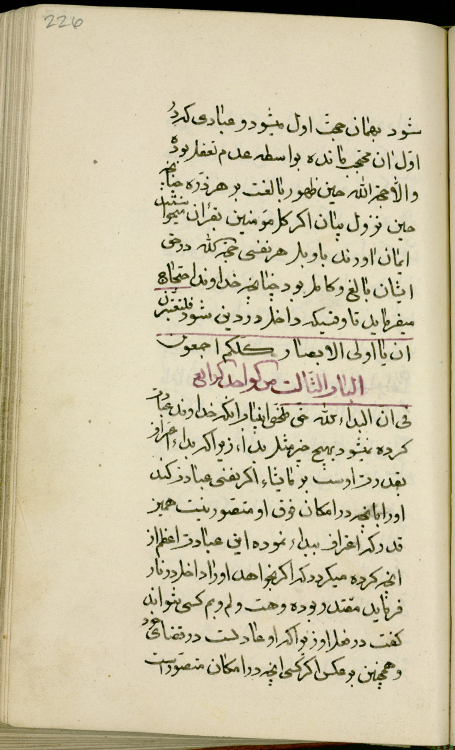 226
شود بهمان حجت اول میشود و عبادی که در
اول ان محتجب مانده بواسطه عدم تعقل بوده
و الا حجة الله حین ظهور بالغست بر هر ذره چنانچه
حین نزول بیان اگر کل مؤمنین بقرآن
ایمان اورند یا ویل هر نفسی حجة الله در حق
ایشان بالغ و کامل بود چنانچه خداوند احتجاج
میفرماید تا وقتیکه داخل در دین شود فلتتقین
ان یا اولی الابصار کلکم اجمعون
الباب الثالث من الواحد الرابع
فی ان البداء لله حق ملخص این باب انکه خداوند عبادت
کرده نمیشود بهیچ چیز مثل بداء زیرا که بداء اعتراف
بقدرت اوست بر مایشاء اگر نفسی عبادت کند
او را بانچه در امکان فوق او متصور نیست همین
قدر که اعتراف ببداء نموده این عبادت اعظم از
انچه کرده میگردد که اگر بخواهد او را داخل در نار
فرماید مقتدر بوده و هست و لم و بم کسی نتواند
گفت در فعل او زیرا که او عادلست در قضای خود
و همچنین بر عکس اگر کسی انچه در امکان متصور است